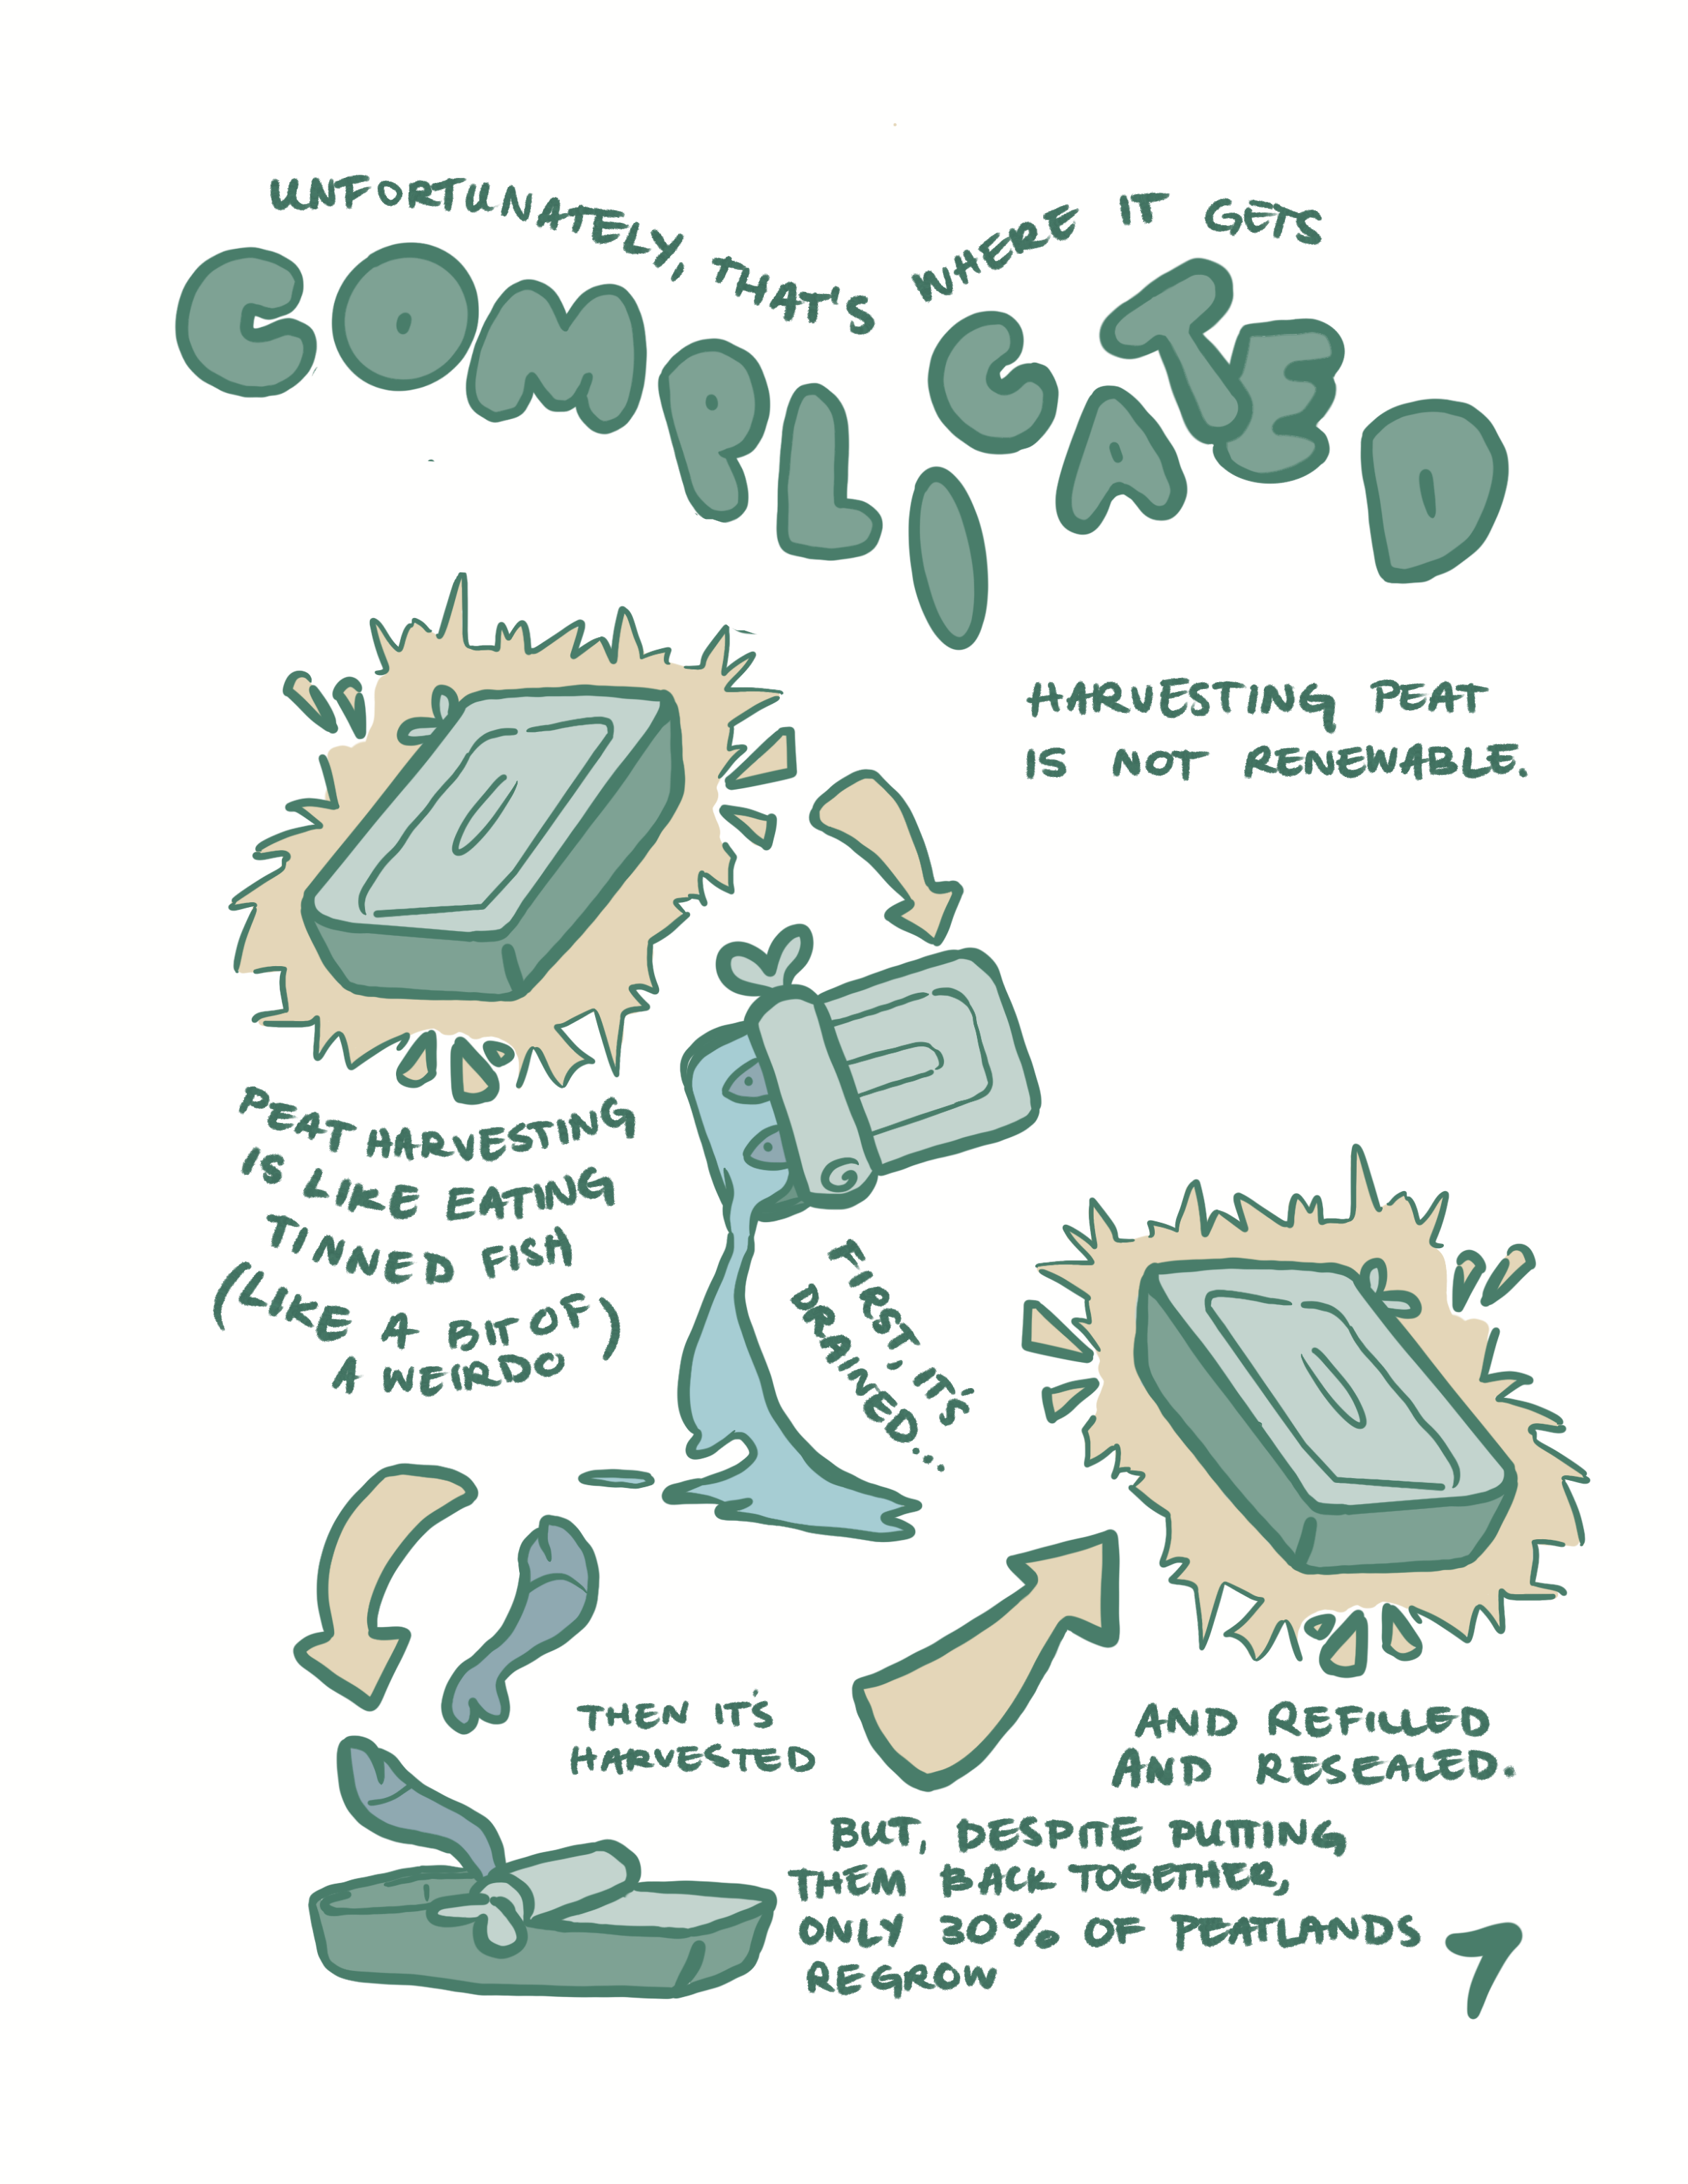 UNFORTUNATELY, THAT'S WHERE IT GETS
COMPLICATED
HARVESTING PEAT
IS NOT RENEWABLE.
PEAT HARVESTING
IS LIKE EATING
TINNED FISH
(LIKE A BIT OF)
A WEIRDO
FIRST, IT'S
DRAINED...
THEN IT'S
HARVESTED
AND REFILLED
AND RESEALED.
BUT, DESPITE PUTTING
THEM BACK TOGETHER,
ONLY 30% OF PEATLANDS
REGROW
7